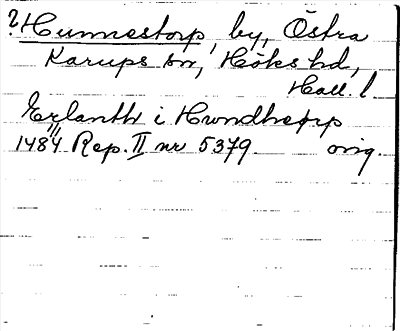 ? Hunnestorp, by, Östra
Karups sn, Höks hd,
Hall. l
Erlanth i Hwndhetorp
1484 Rep. II nr 5379 orig.